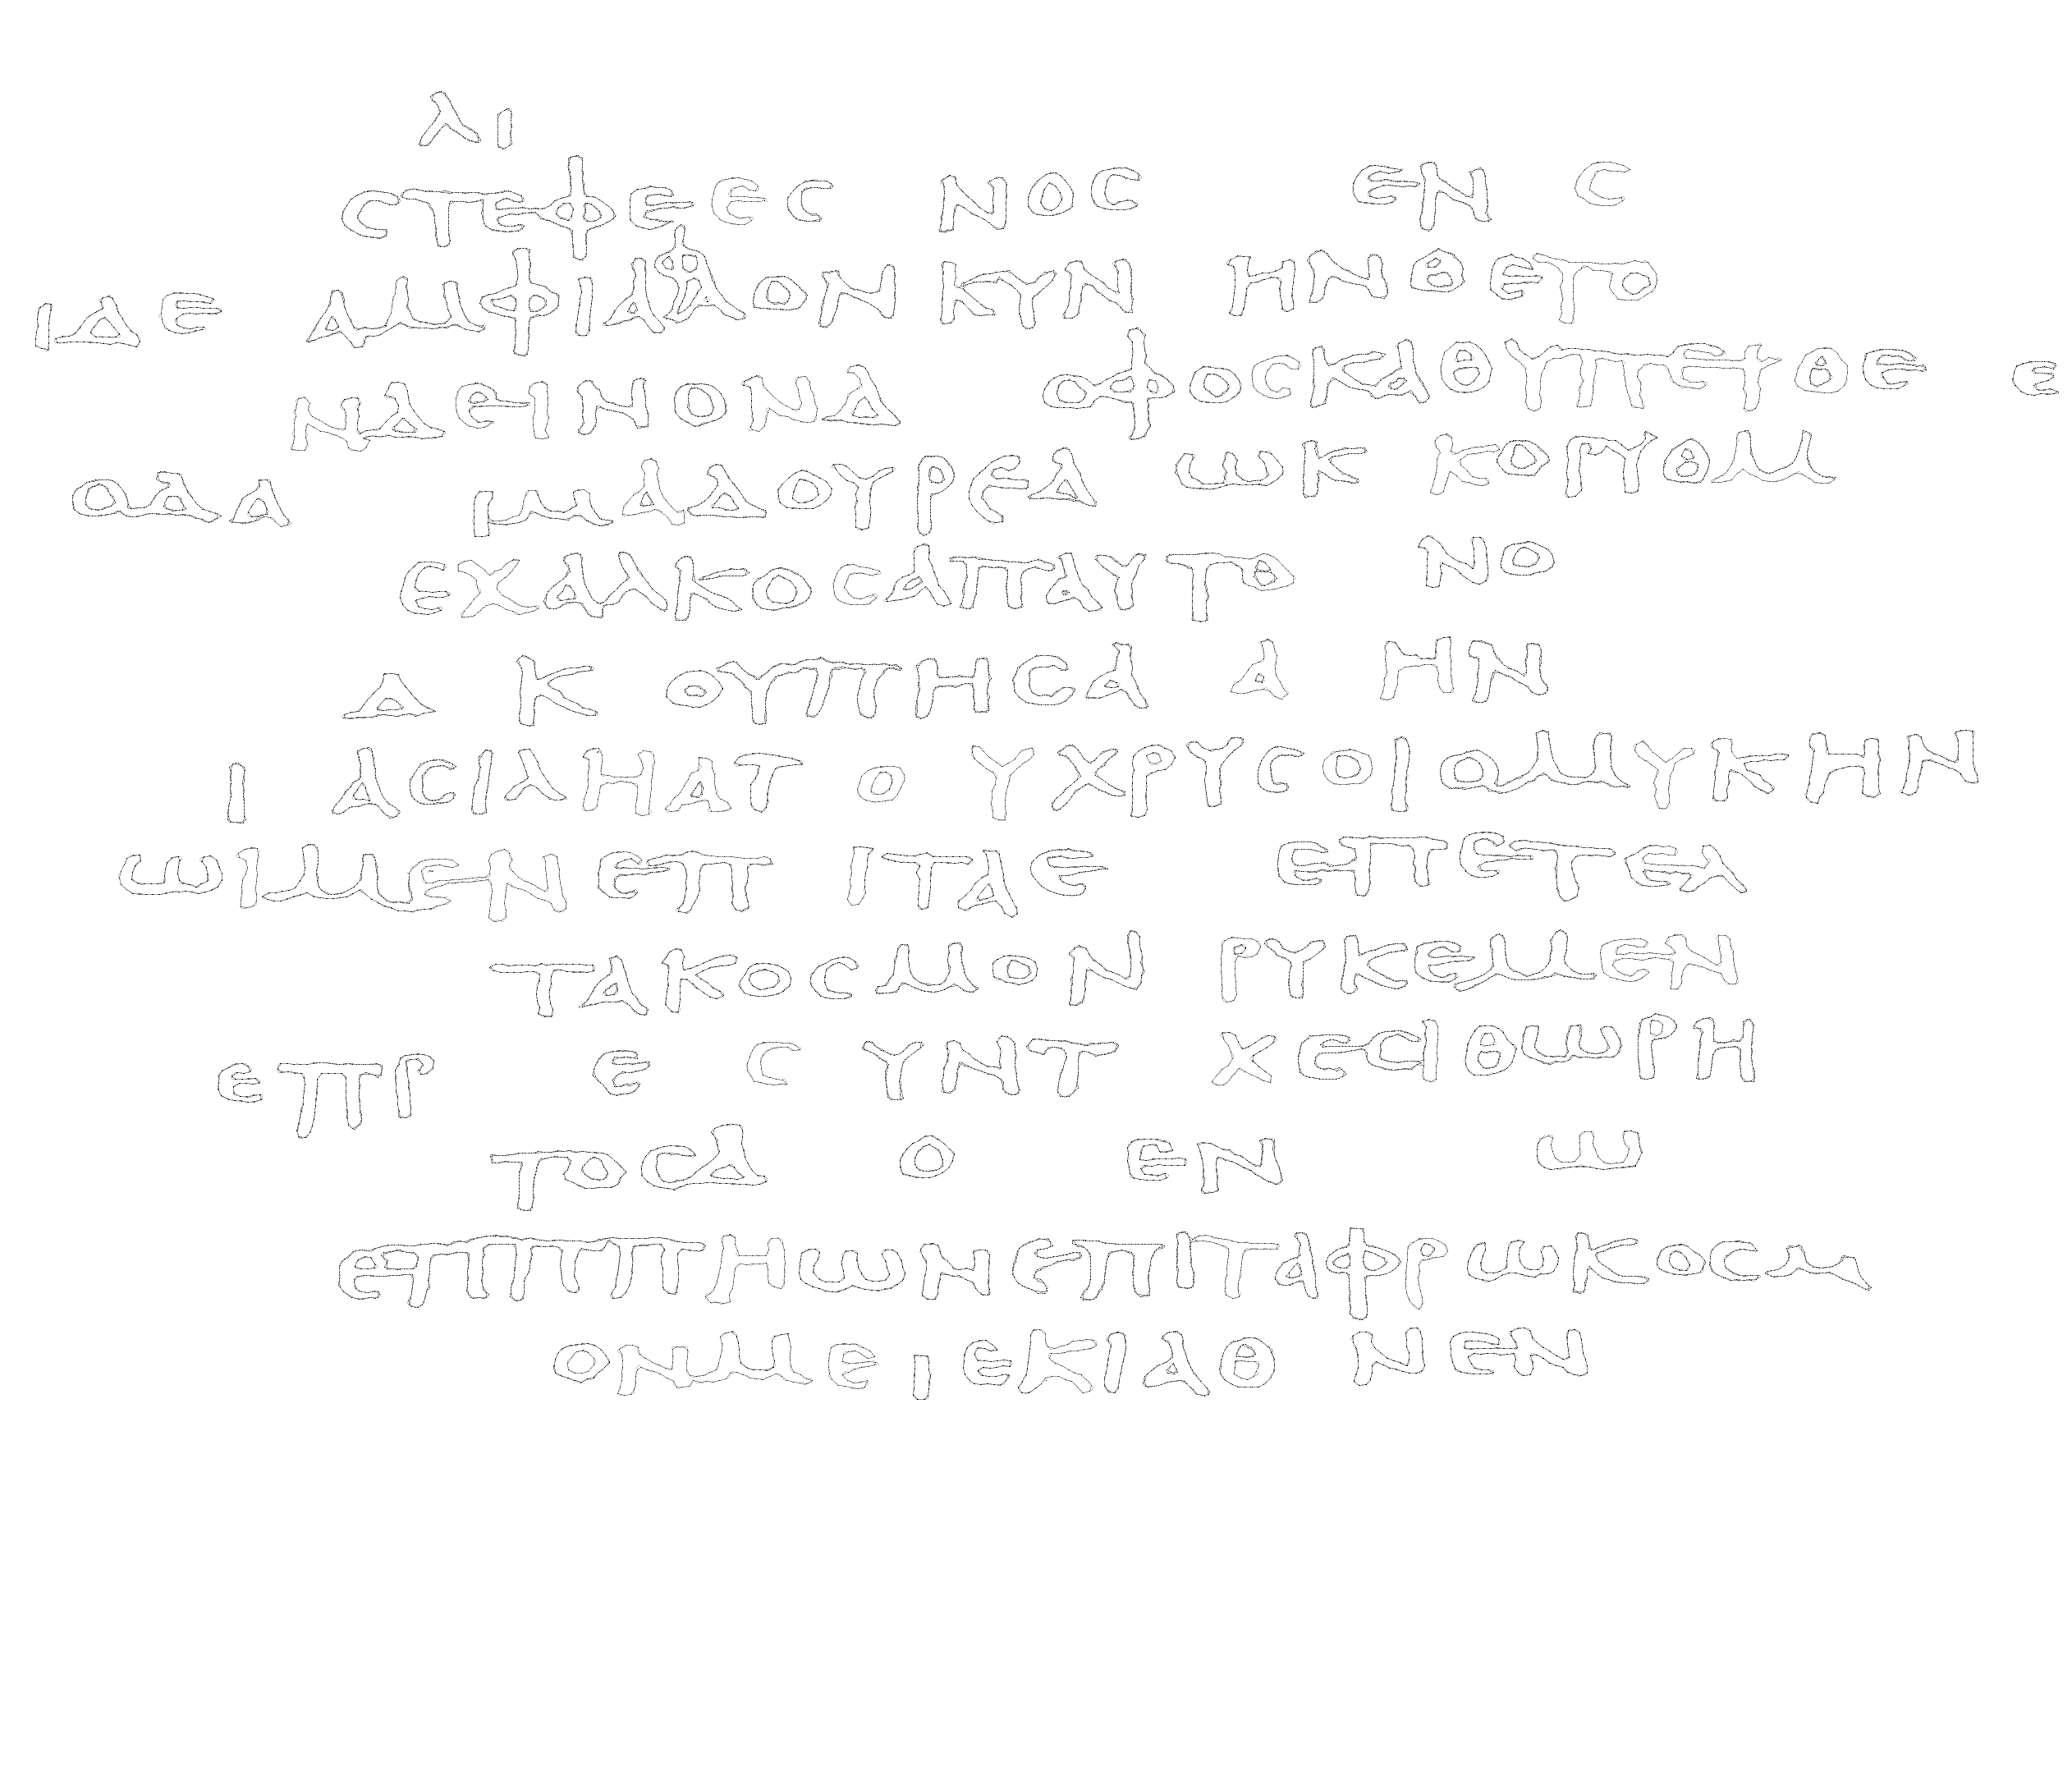 λι
ϲτεφεεϲ νοϲ εν ϲ
ιδε αμφιδαον κυν ηνθετο
ναεινονδ οφοϲκαθυπετθε ε
αδα ιμαδουρεδ ωκ κορυθμ
εχαλκοϲαπαυτο νο
δ κ ουπηϲα α ην
ι αϲιληατ ο υχρυϲοιομυκην
ωιμενεπ ιταε επετελ
τακοϲμον ρυκεμεν
επρ ε ϲ υντ χεϲιθωρη
τοϲδ ο εν ω
επππηωνεπιταφρωκοϲμ
ονμε ιεκιαθ νεν